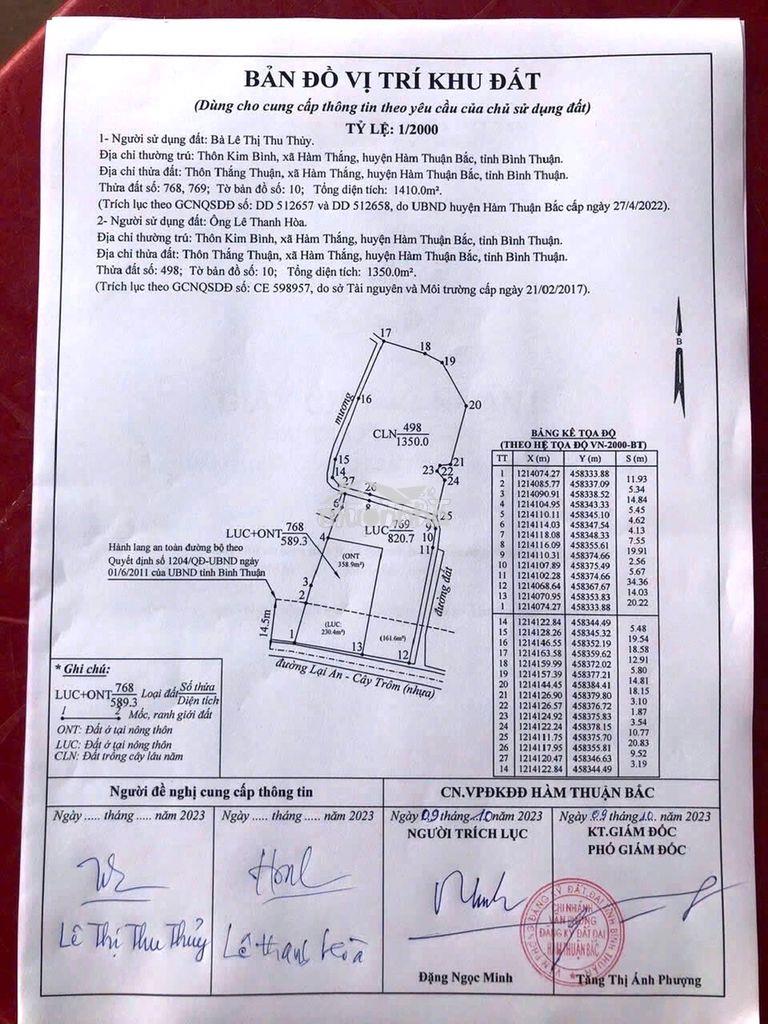 BẢN ĐỒ VỊ TRÍ KHU ĐẤT
(Dùng cho cung cấp thông tin theo yêu cầu của chủ sử dụng đất)
TỶ LỆ: 1/2000
1- Người sử dụng đất: Bà Lê Thị Thu Thủy.
Địa chỉ thường trú: Thôn Kim Bình, xã Hàm Thắng, huyện Hàm Thuận Bắc, tỉnh Bình Thuận.
Địa chỉ thửa đất: Thôn Thắng Thuận, xã Hàm Thắng, huyện Hàm Thuận Bắc, tỉnh Bình Thuận.
Thửa đất số: 768, 769; Tờ bản đồ số: 10; Tổng diện tích: 1410.0m².
(Trích lục theo GCNQSDĐ số: DD 512657 và DD 512658, do UBND huyện Hàm Thuận Bắc cấp ngày 27/4/2022).
2- Người sử dụng đất: Ông Lê Thanh Hòa.
Địa chỉ thường trú: Thôn Kim Bình, xã Hàm Thắng, huyện Hàm Thuận Bắc, tỉnh Bình Thuận.
Địa chỉ thửa đất: Thôn Thắng Thuận, xã Hàm Thắng, huyện Hàm Thuận Bắc, tỉnh Bình Thuận.
Thửa đất số: 498; Tờ bản đồ số: 10; Tổng diện tích: 1350.0m².
(Trích lục theo GCNQSDĐ số: CE 598957, do sở Tài nguyên và Môi trường cấp ngày 21/02/2017).
17
18
19
B
mương
16
20
CLN 498
1350.0
15
14
21
23 22
24
27 26
6 8
25
LUC+ONT 768
589.3
LUC 769
820.7
9
10
11
4
Hành lang an toàn đường bộ theo
Quyết định số 1204/QĐ-UBND ngày
01/6/2011 của UBND tỉnh Bình Thuận
(ONT
358.9m²)
3
2
đường đất
14.5m
(LUC:
230.4m²)
(161.6m²)
1
13
12
đường Lại An - Cây Trôm (nhựa)
BẢNG KÊ TỌA ĐỘ
(THEO HỆ TỌA ĐỘ VN-2000-BT)
TT X (m) Y (m) S (m)
1 1214074.27 458333.88
11.93
2 1214085.77 458337.09
5.34
3 1214090.91 458338.52
14.84
4 1214104.95 458343.33
5.45
5 1214110.11 458345.10
4.62
6 1214114.03 458347.54
4.13
7 1214118.08 458348.33
7.55
8 1214116.09 458355.61
19.91
9 1214110.31 458374.66
2.56
10 1214107.89 458375.49
5.67
11 1214102.28 458374.66
34.36
12 1214068.64 458367.67
14.03
13 1214070.95 458353.83
20.22
1 1214074.27 458333.88
14 1214122.84 458344.49
5.48
15 1214128.26 458345.32
19.54
16 1214146.55 458352.19
18.58
17 1214163.58 458359.62
12.91
18 1214159.99 458372.02
5.80
19 1214157.39 458377.21
14.81
20 1214144.45 458384.41
18.15
21 1214126.90 458379.80
3.10
22 1214126.57 458376.72
1.87
23 1214124.92 458375.83
3.54
24 1214122.24 458378.15
10.77
25 1214111.75 458375.70
20.83
26 1214117.95 458355.81
9.52
27 1214120.47 458346.63
3.19
14 1214122.84 458344.49
* Ghi chú:
LUC+ONT 768
589.3
Loại đất Số thửa
Diện tích
1 2 Mốc, ranh giới đất
ONT: Đất ở tại nông thôn
LUC: Đất ở tại nông thôn
CLN: Đất trồng cây lâu năm
Người đề nghị cung cấp thông tin
CN.VPĐKĐĐ HÀM THUẬN BẮC
Ngày ..... tháng ..... năm 2023
Ngày ..... tháng ..... năm 2023
Ngày 09 tháng 10 năm 2023
Ngày 09 tháng 10 năm 2023
NGƯỜI TRÍCH LỤC
KT.GIÁM ĐỐC
PHÓ GIÁM ĐỐC
Lê Thị Thu Thủy
Lê Thanh Hòa
CHI NHÁNH
VĂN PHÒNG
ĐĂNG KÝ ĐẤT ĐAI
HÀM THUẬN BẮC
Đặng Ngọc Minh
Tăng Thị Ánh Phượng